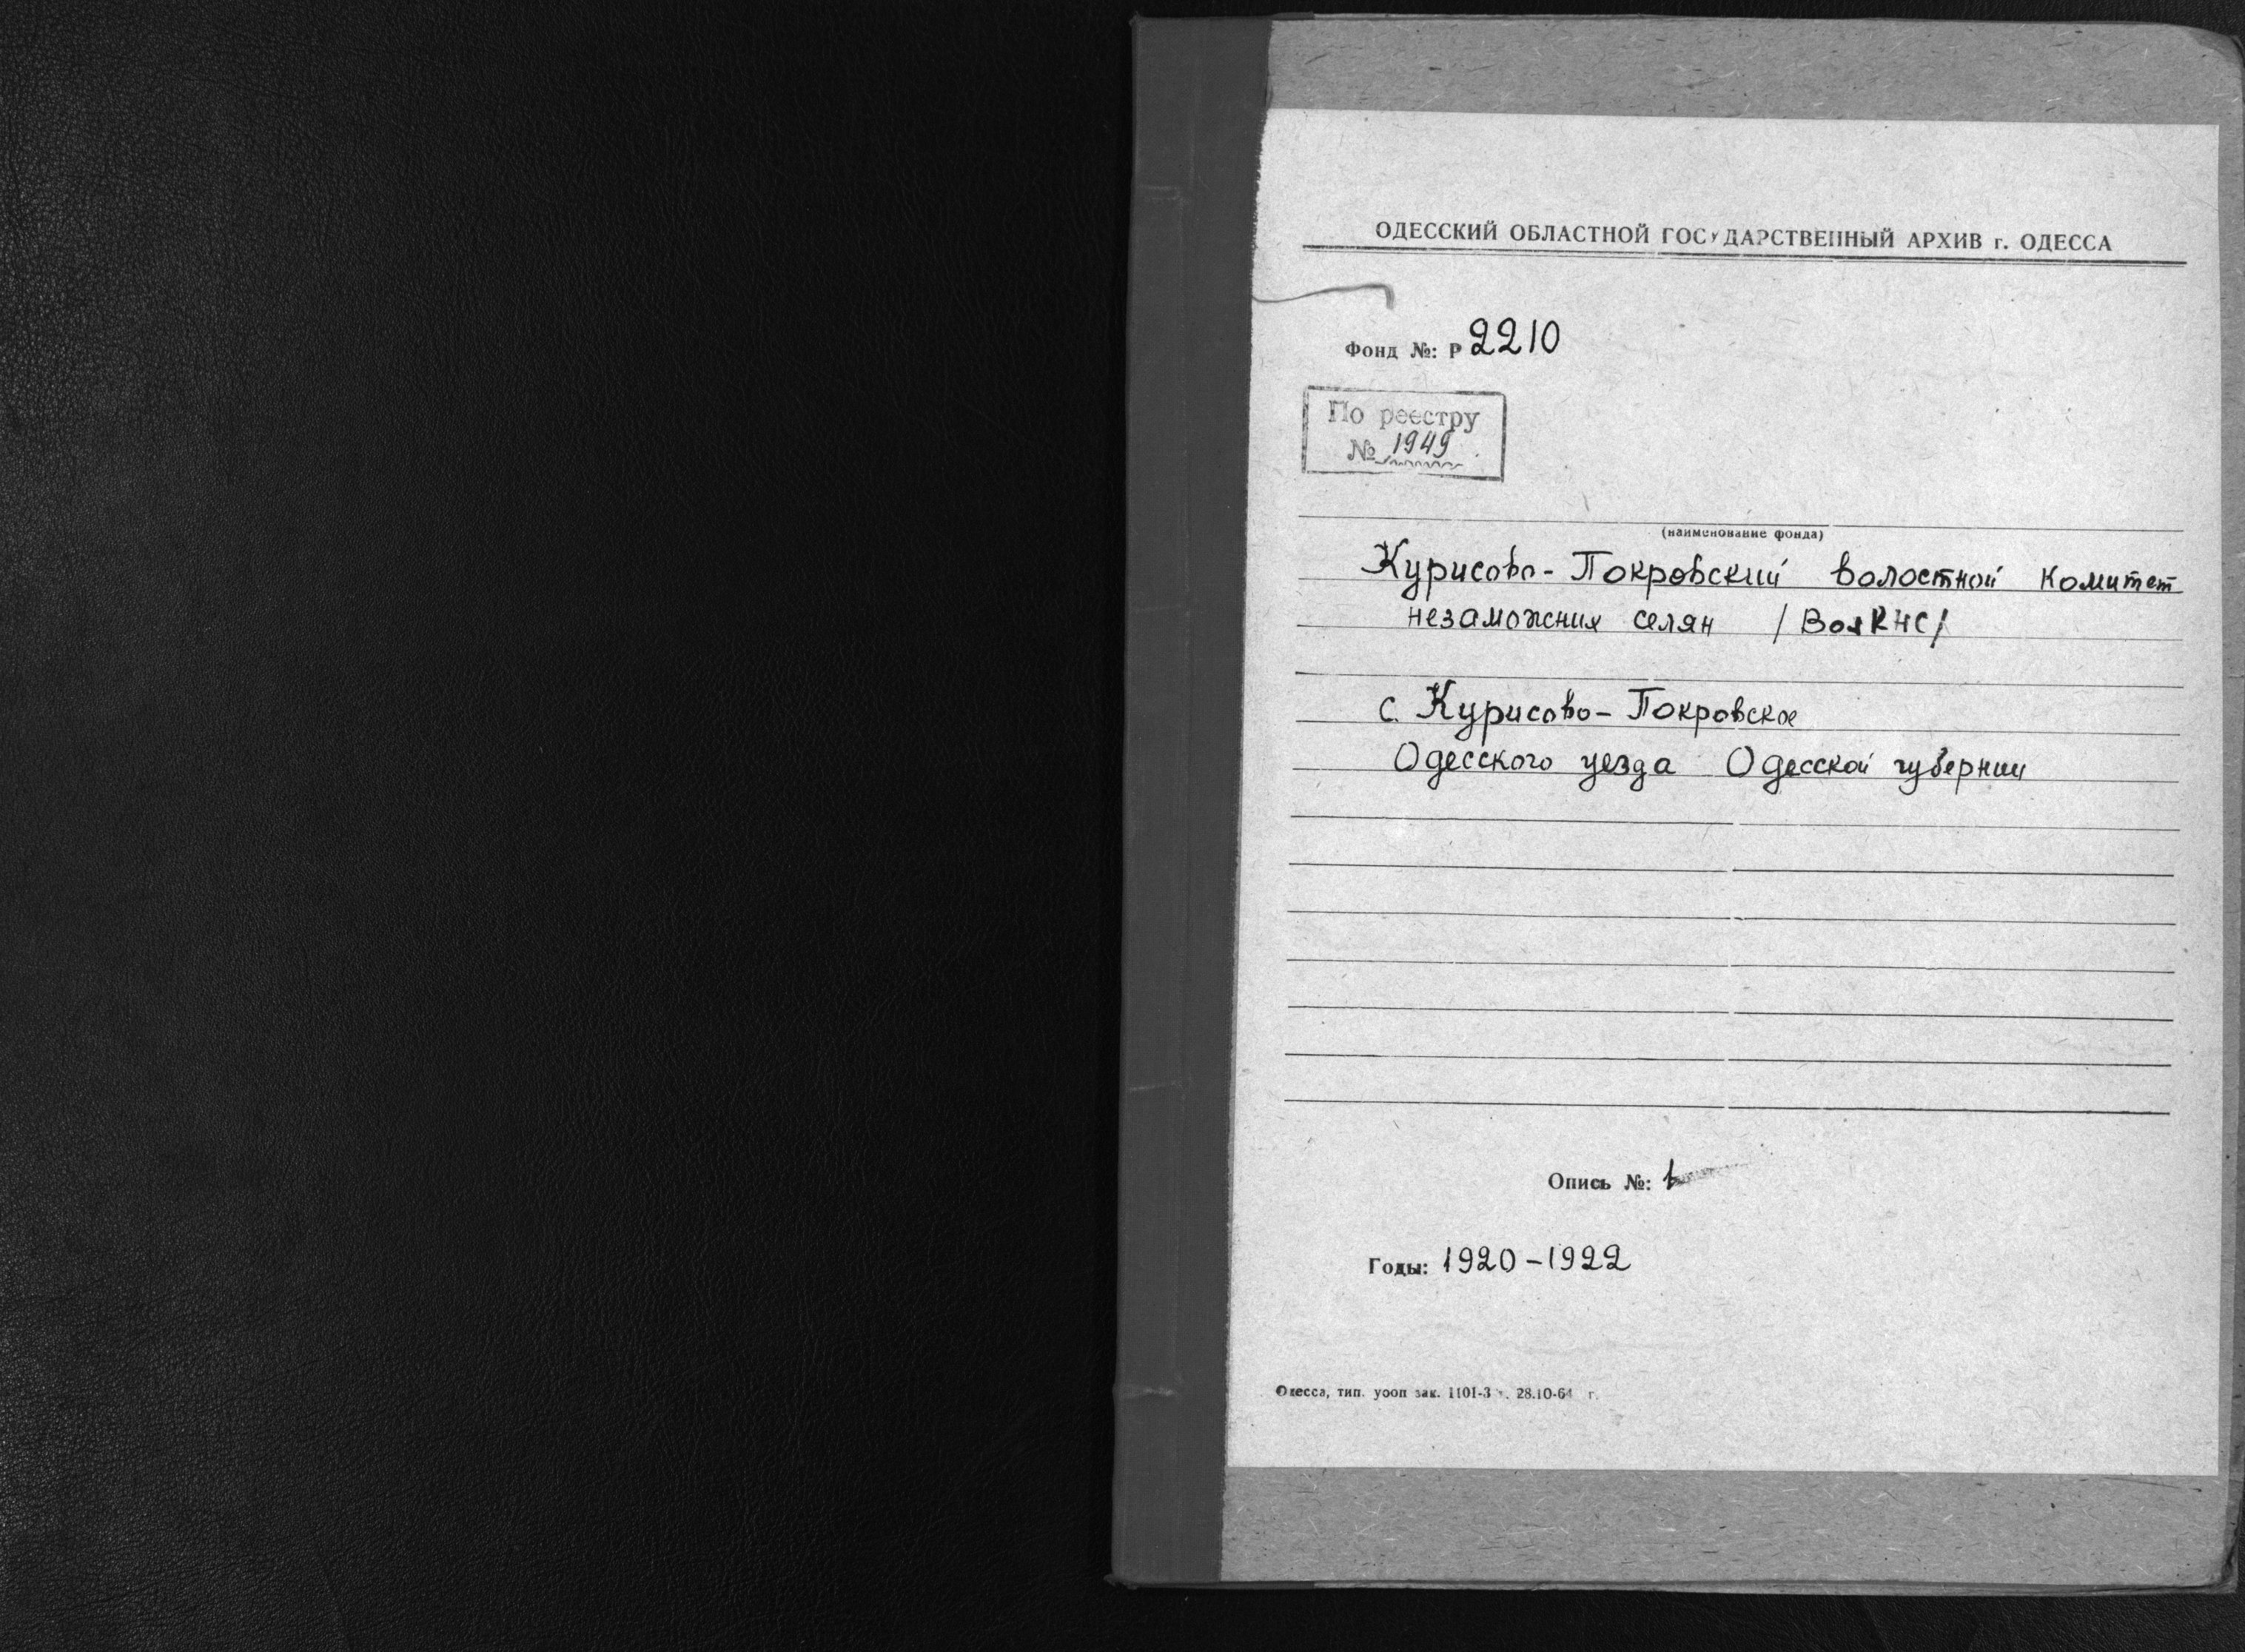 ОДЕССКИЙ ОБЛАСТНОЙ ГОСУДАРСТВЕННЫЙ АРХИВ г. ОДЕССА
Фонд №: Р 2210
По реестру
№ 1949
(наименование фонда)
Курисово-Покровский волостной комитет
незаможних селян /ВолКНС/
с. Курисово-Покровское
Одесского уезда Одесской губернии
Опись №: 1
Годы: 1920-1922
Одесса, тип. уооп зак. 1101-3 т. 28.10-64 г.